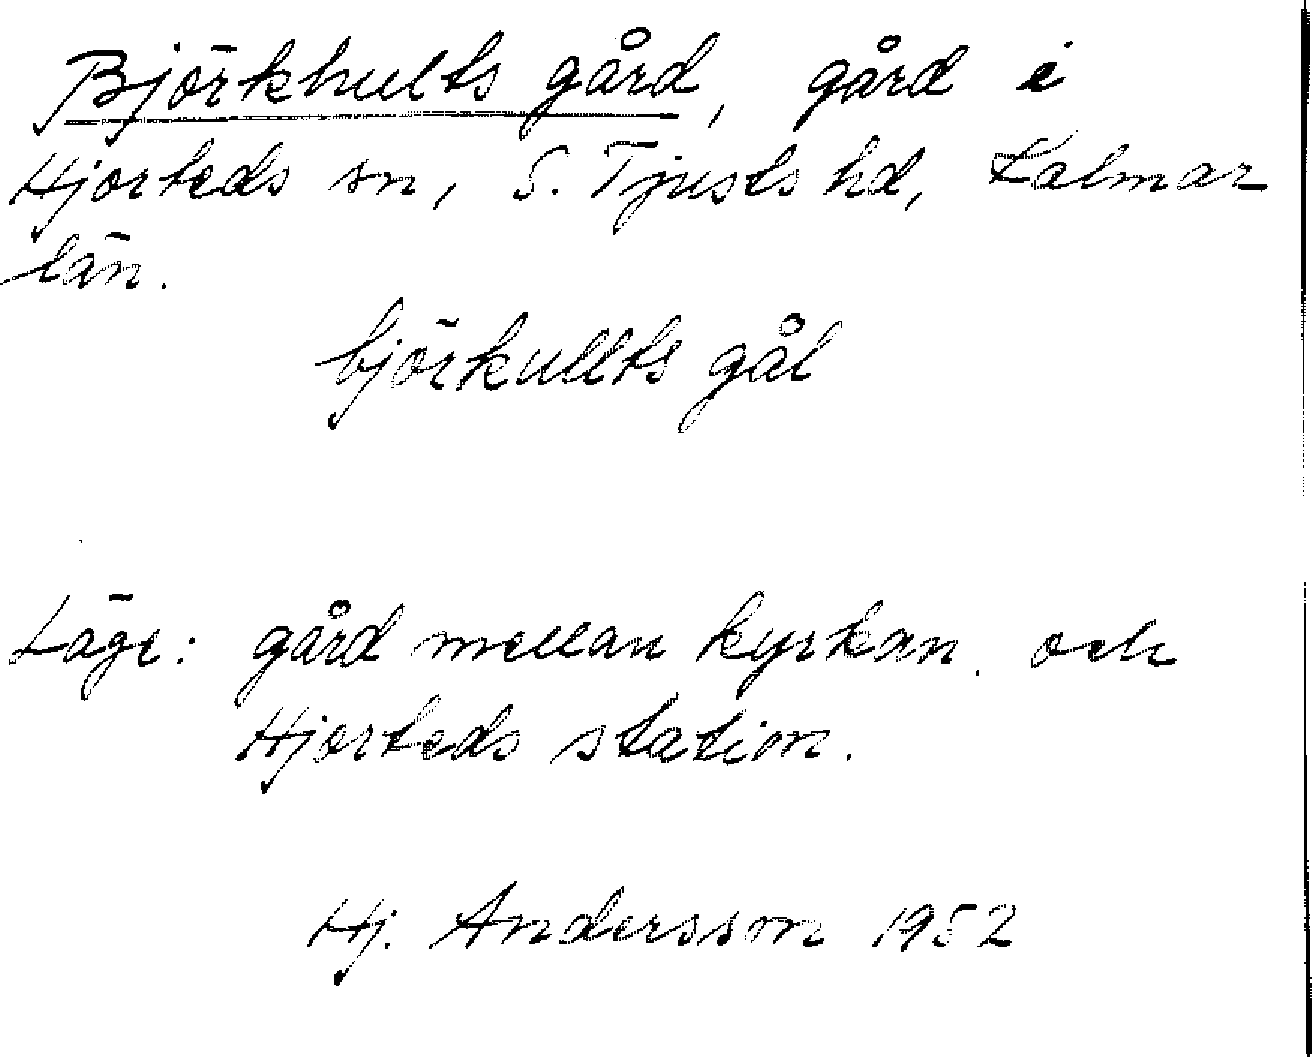 Björkhults gård, gård i
Hjorteds sn, S. Tjusts hd, Kalmar
län.
björkullts gål
Läge: gård mellan kyrkan och
Hjorteds station.
Hj. Andersson 1952